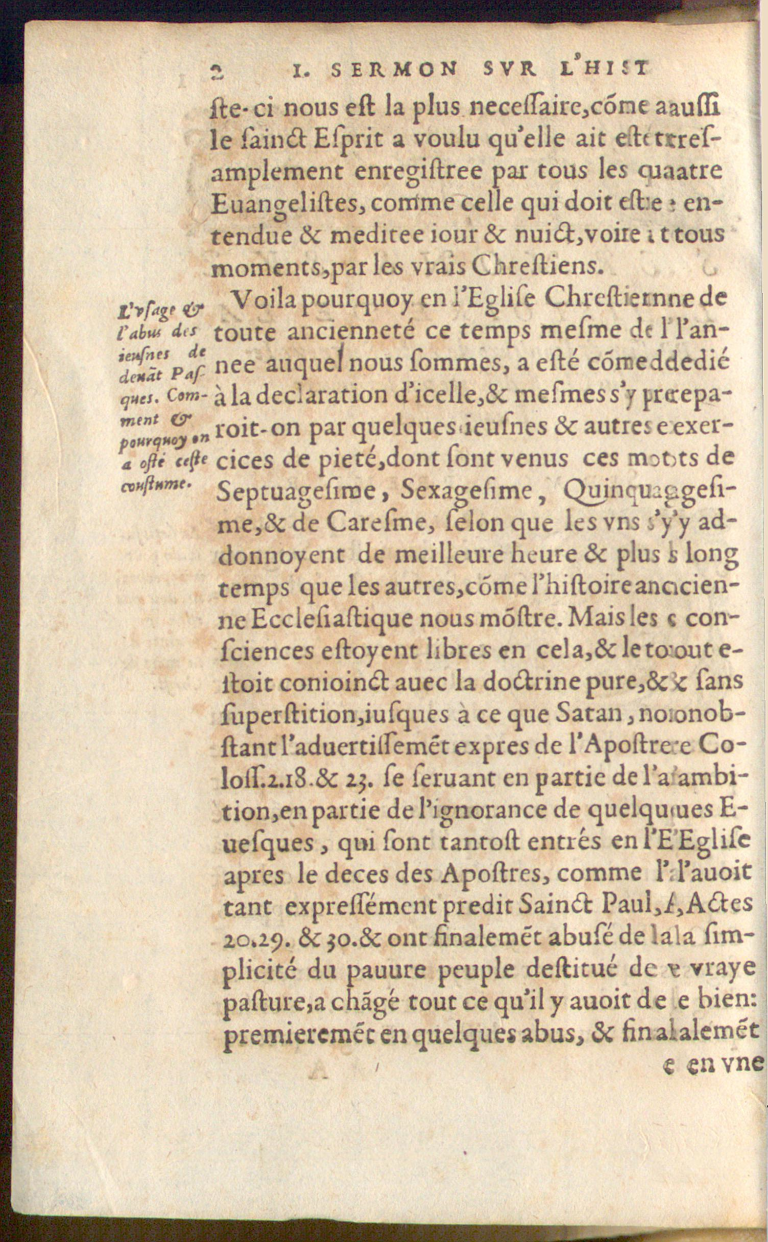 2 I. SERMON SVR L'HIST
ſte-ci nous eſt la plus neceſſaire,cõme auſſi
le ſainct Eſprit a voulu qu'elle ait eſté treſ-
amplement enregiſtree par tous les quatre
Euangeliſtes, comme celle qui doit eſtre en-
tendue & meditee iour & nuict,voire à tous
moments,par les vrais Chreſtiens.
L'vſage &
l'abus des
ieuſnes de
deuãt Paſ
ques. Com-
ment &
pourquoy on
a oſté ceſte
couſtume.
Voila pourquoy en l'Egliſe Chreſtienne de
toute ancienneté ce temps meſme de l'an-
nee auquel nous ſommes, a eſté cõme dedié
à la declaration d'icelle,& meſmes s'y prepa-
roit-on par quelques ieuſnes & autres exer-
cices de pieté,dont ſont venus ces mots de
Septuageſime, Sexageſime, Quinquageſi-
me,& de Careſme, ſelon que les vns s'y ad-
donnoyent de meilleure heure & plus long
temps que les autres,cõme l'hiſtoire ancien-
ne Eccleſiaſtique nous mõſtre. Mais les con-
ſciences eſtoyent libres en cela,& le tout e-
ſtoit conioinct auec la doctrine pure,& ſans
ſuperſtition,iuſques à ce que Satan, nonob-
ſtant l'aduertiſſemẽt expres de l'Apoſtre Co-
loſſ.2.18.& 23. ſe ſeruant en partie de l'ambi-
tion,en partie de l'ignorance de quelques E-
ueſques, qui ſont tantoſt entrés en l'Egliſe
apres le deces des Apoſtres, comme l'auoit
tant expreſſément predit Sainct Paul, Actes
20.29. & 30.& ont finalemẽt abuſé de la ſim-
plicité du pauure peuple deſtitué de vraye
paſture,a chãgé tout ce qu'il y auoit de bien:
premieremẽt en quelques abus, & finalemẽt
en vne